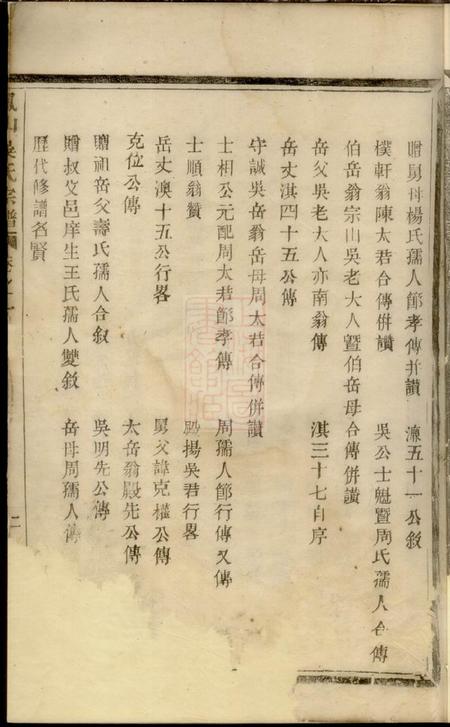 贈舅母楊氏孺人節孝傳并讚　源五十一公敘
樸軒翁陳太君合傳併讚　吳公士魁暨周氏孺人合傳
伯岳翁宗山吳老大人暨伯岳母合傳併讚
岳父吳老大人亦南翁傳　淇三十七自序
岳丈淇四十五公傳
守誠吳岳翁岳母周太君合傳併讚
士相公元配周太君節孝傳　周孺人節行傳又傳
士順翁贊　殿揚吳君行畧
岳丈澳十五公行畧　舅父諱克權公傳
克位公傳　太岳翁殿先公傳
贈祖岳父壽氏孺人合敘　吳明先公傳
贈叔丈邑庠生王氏孺人雙敘　岳母周孺人傳
歷代修譜名賢
山吳氏宗譜
二